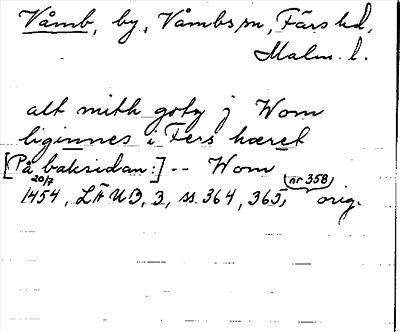 Våmb, by, Våmbs sn, Färs hd,
Malm. l.
alt mith gotz j Wom
liginnes i Fers hæret
[På baksidan:] -- Wom
20/7 1454, LÄUB, 3, ss. 364, 365, (nr 358) orig.